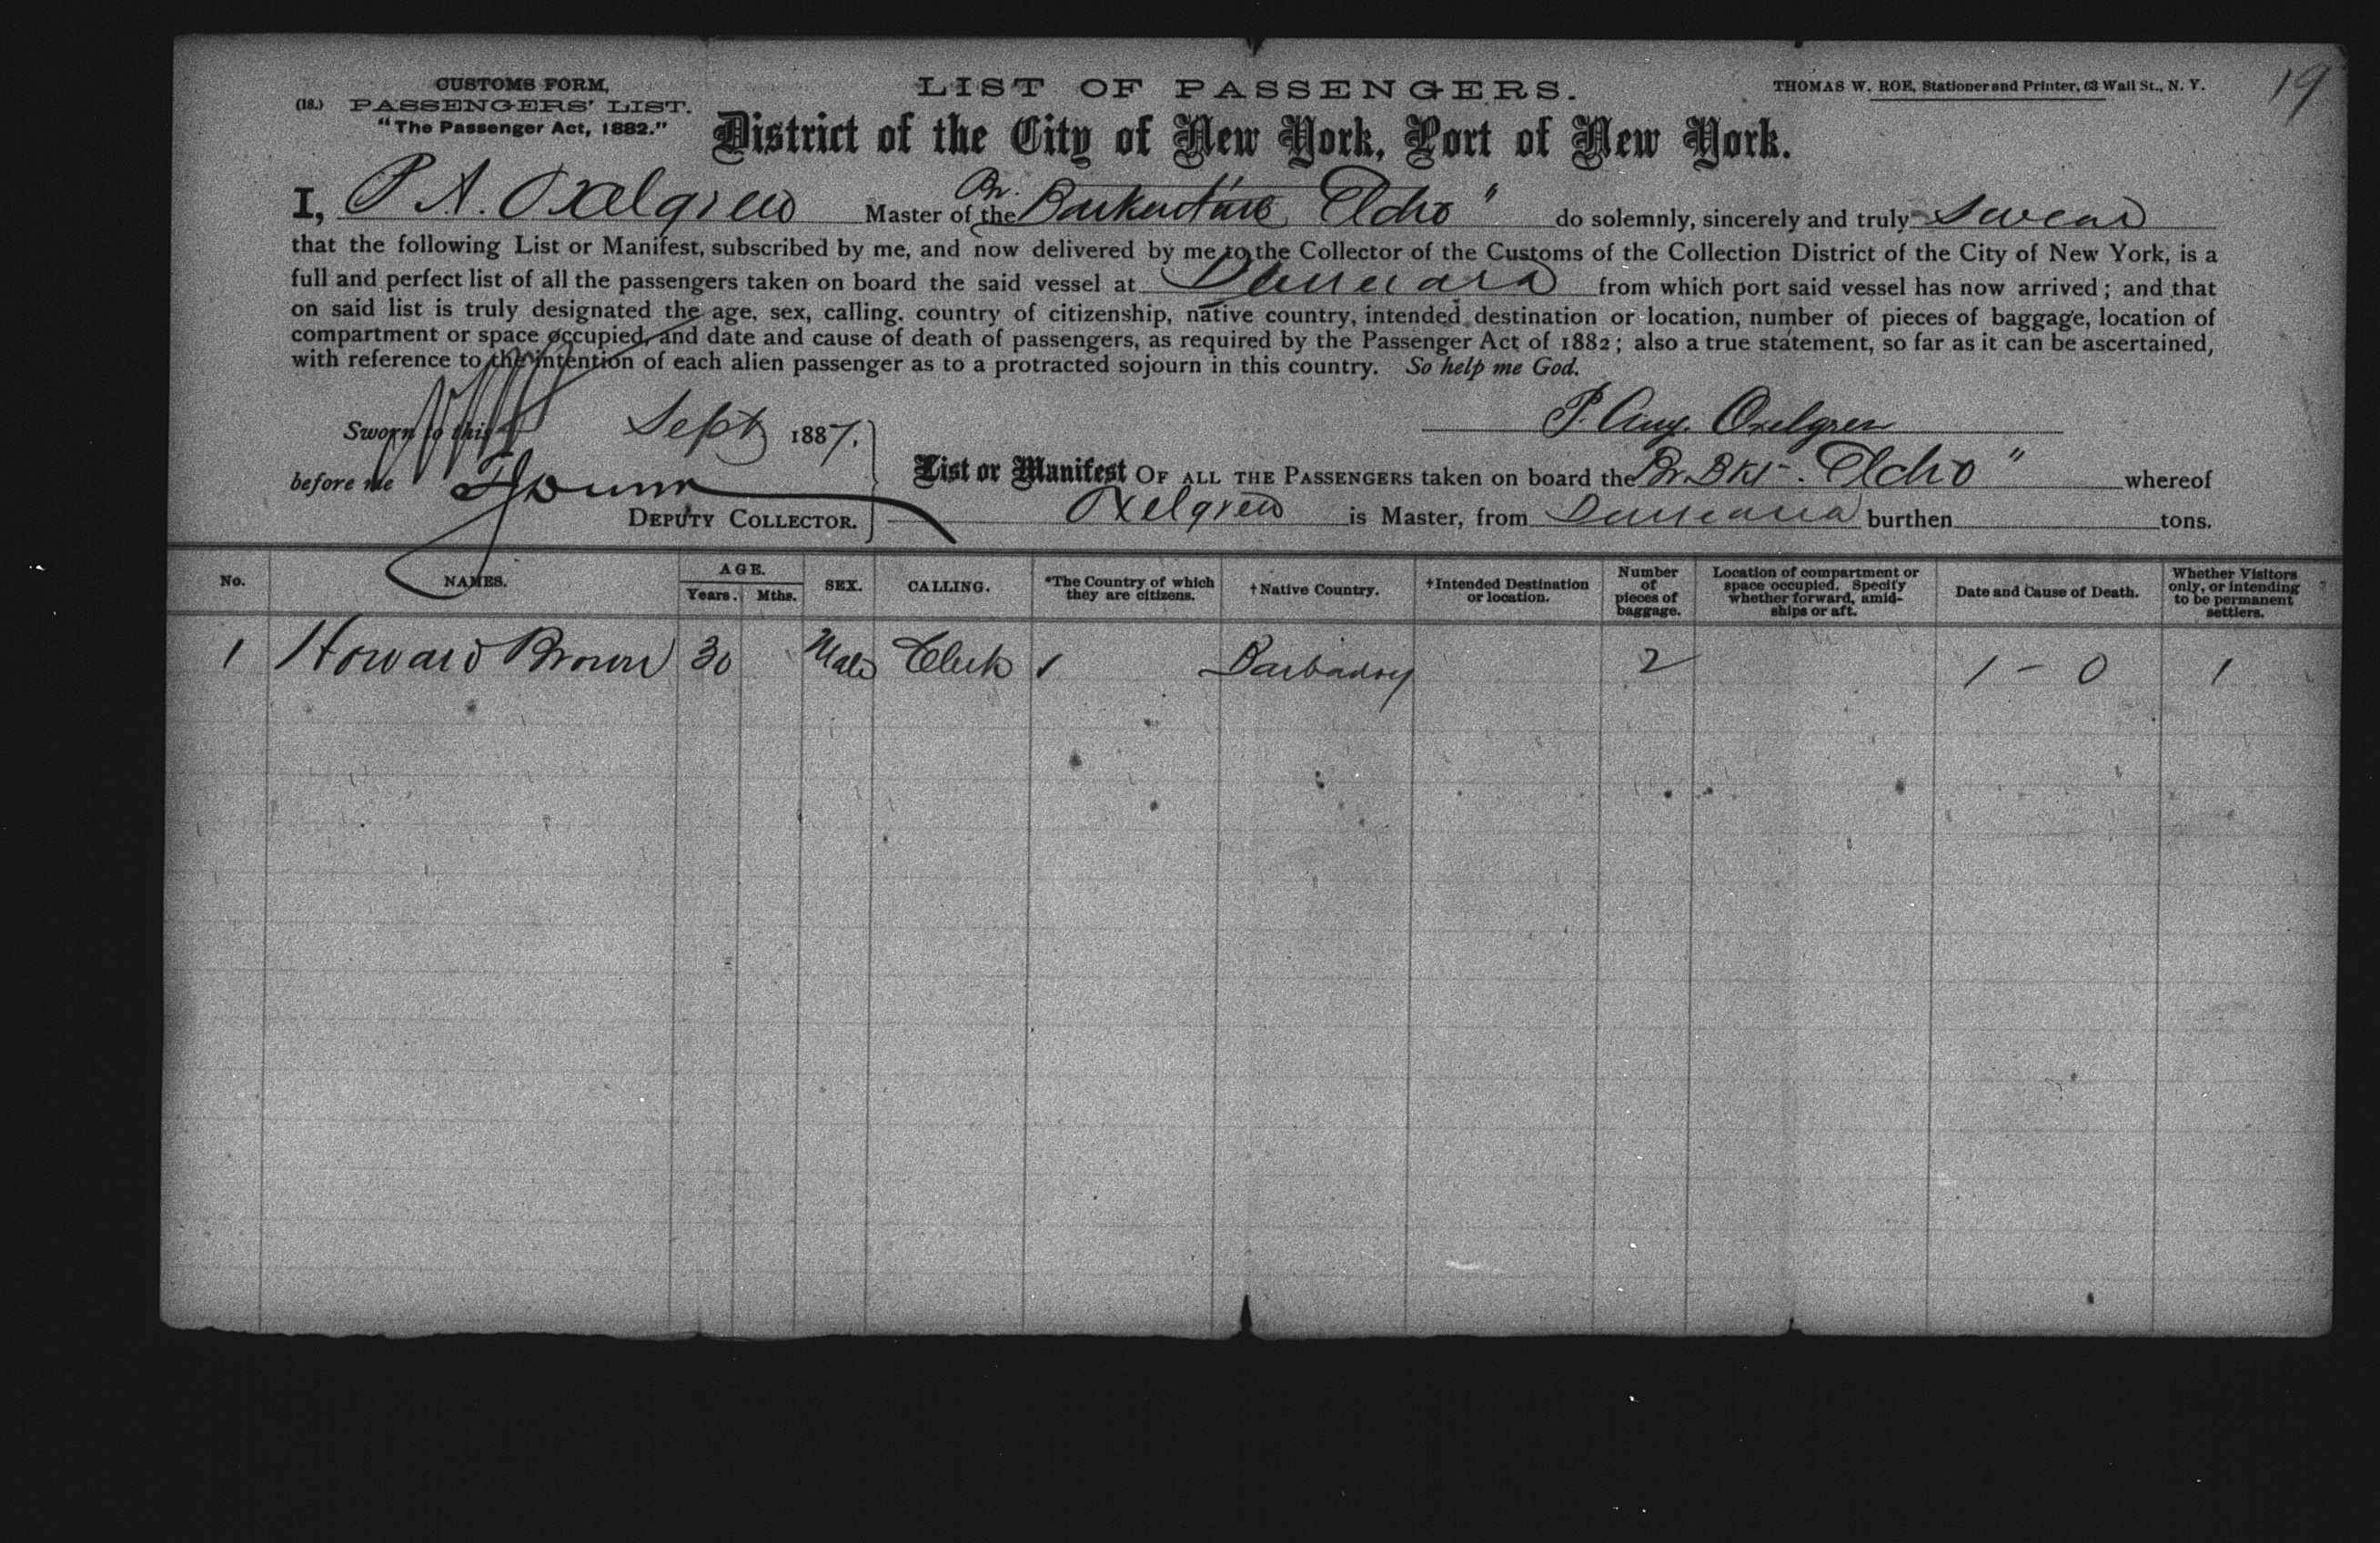 CUSTOMS FORM,
(18.) PASSENGERS' LIST.
"The Passenger Act, 1882."
LIST OF PASSENGERS.
THOMAS W. ROE, Stationer and Printer, 63 Wall St., N. Y.
19
District of the City of New York, Port of New York.
I, P A. Oxelgren Master of the Br. Barkentine "Elcho" do solemnly, sincerely and truly swear
that the following List or Manifest, subscribed by me, and now delivered by me to the Collector of the Customs of the Collection District of the City of New York, is a
full and perfect list of all the passengers taken on board the said vessel at Demerara from which port said vessel has now arrived; and that
on said list is truly designated the age, sex, calling, country of citizenship, native country, intended destination or location, number of pieces of baggage, location of
compartment or space occupied, and date and cause of death of passengers, as required by the Passenger Act of 1882; also a true statement, so far as it can be ascertained,
with reference to the intention of each alien passenger as to a protracted sojourn in this country. So help me God.
Sworn to this Sept 1887.
P. Aug. Oxelgren
before me
DEPUTY COLLECTOR.
List or Manifest OF ALL THE PASSENGERS taken on board the Br. Bkt. Elcho" whereof
Oxelgren is Master, from Demerara burthen tons.
No. NAMES. AGE. Years. Mths. SEX. CALLING. *The Country of which they are citizens. †Native Country. †Intended Destination or location. Number of pieces of baggage. Location of compartment or space occupied. Specify whether forward, amidships or aft. Date and Cause of Death. Whether Visitors only, or intending to be permanent settlers.
1 Howard Brown 30 Male Clerk 1 Barbadoes 2 1 - 0 1